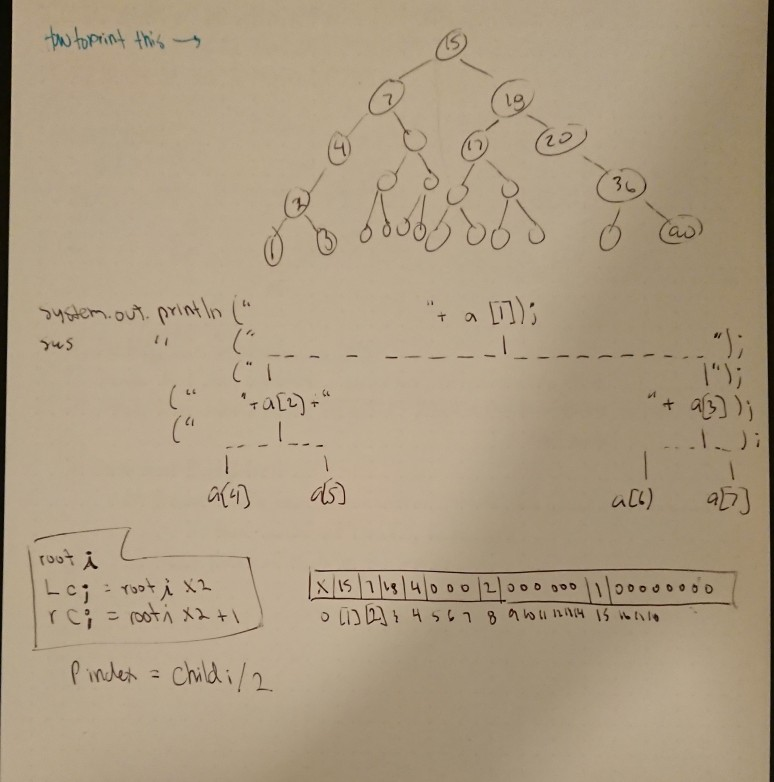 how to print this →
15
7 19
4 17 20
2 36
1 3 90
System.out.println (" "+ a [1]);
sws " (" | ");
_ _ _ _ _ _ _ _ _ _ _ _ _ _
(" | |");
(" "+a[2]+" "+ a[3]);
(" | | );
_ _ _ _ _ _ _ _
| | | |
a[4] a[5] a[6] a[7]
root i
L c i = root i x2
r c i = root i x2 +1
X|15|7|19|4|0 0 0|2|0 0 0 0 0 0|1|0 0 0 0 0 0 0 0
0 [1] [2] 3 4 5 6 7 8 9 10 11 12 13 14 15 16 17 18
Pindex = child i/2